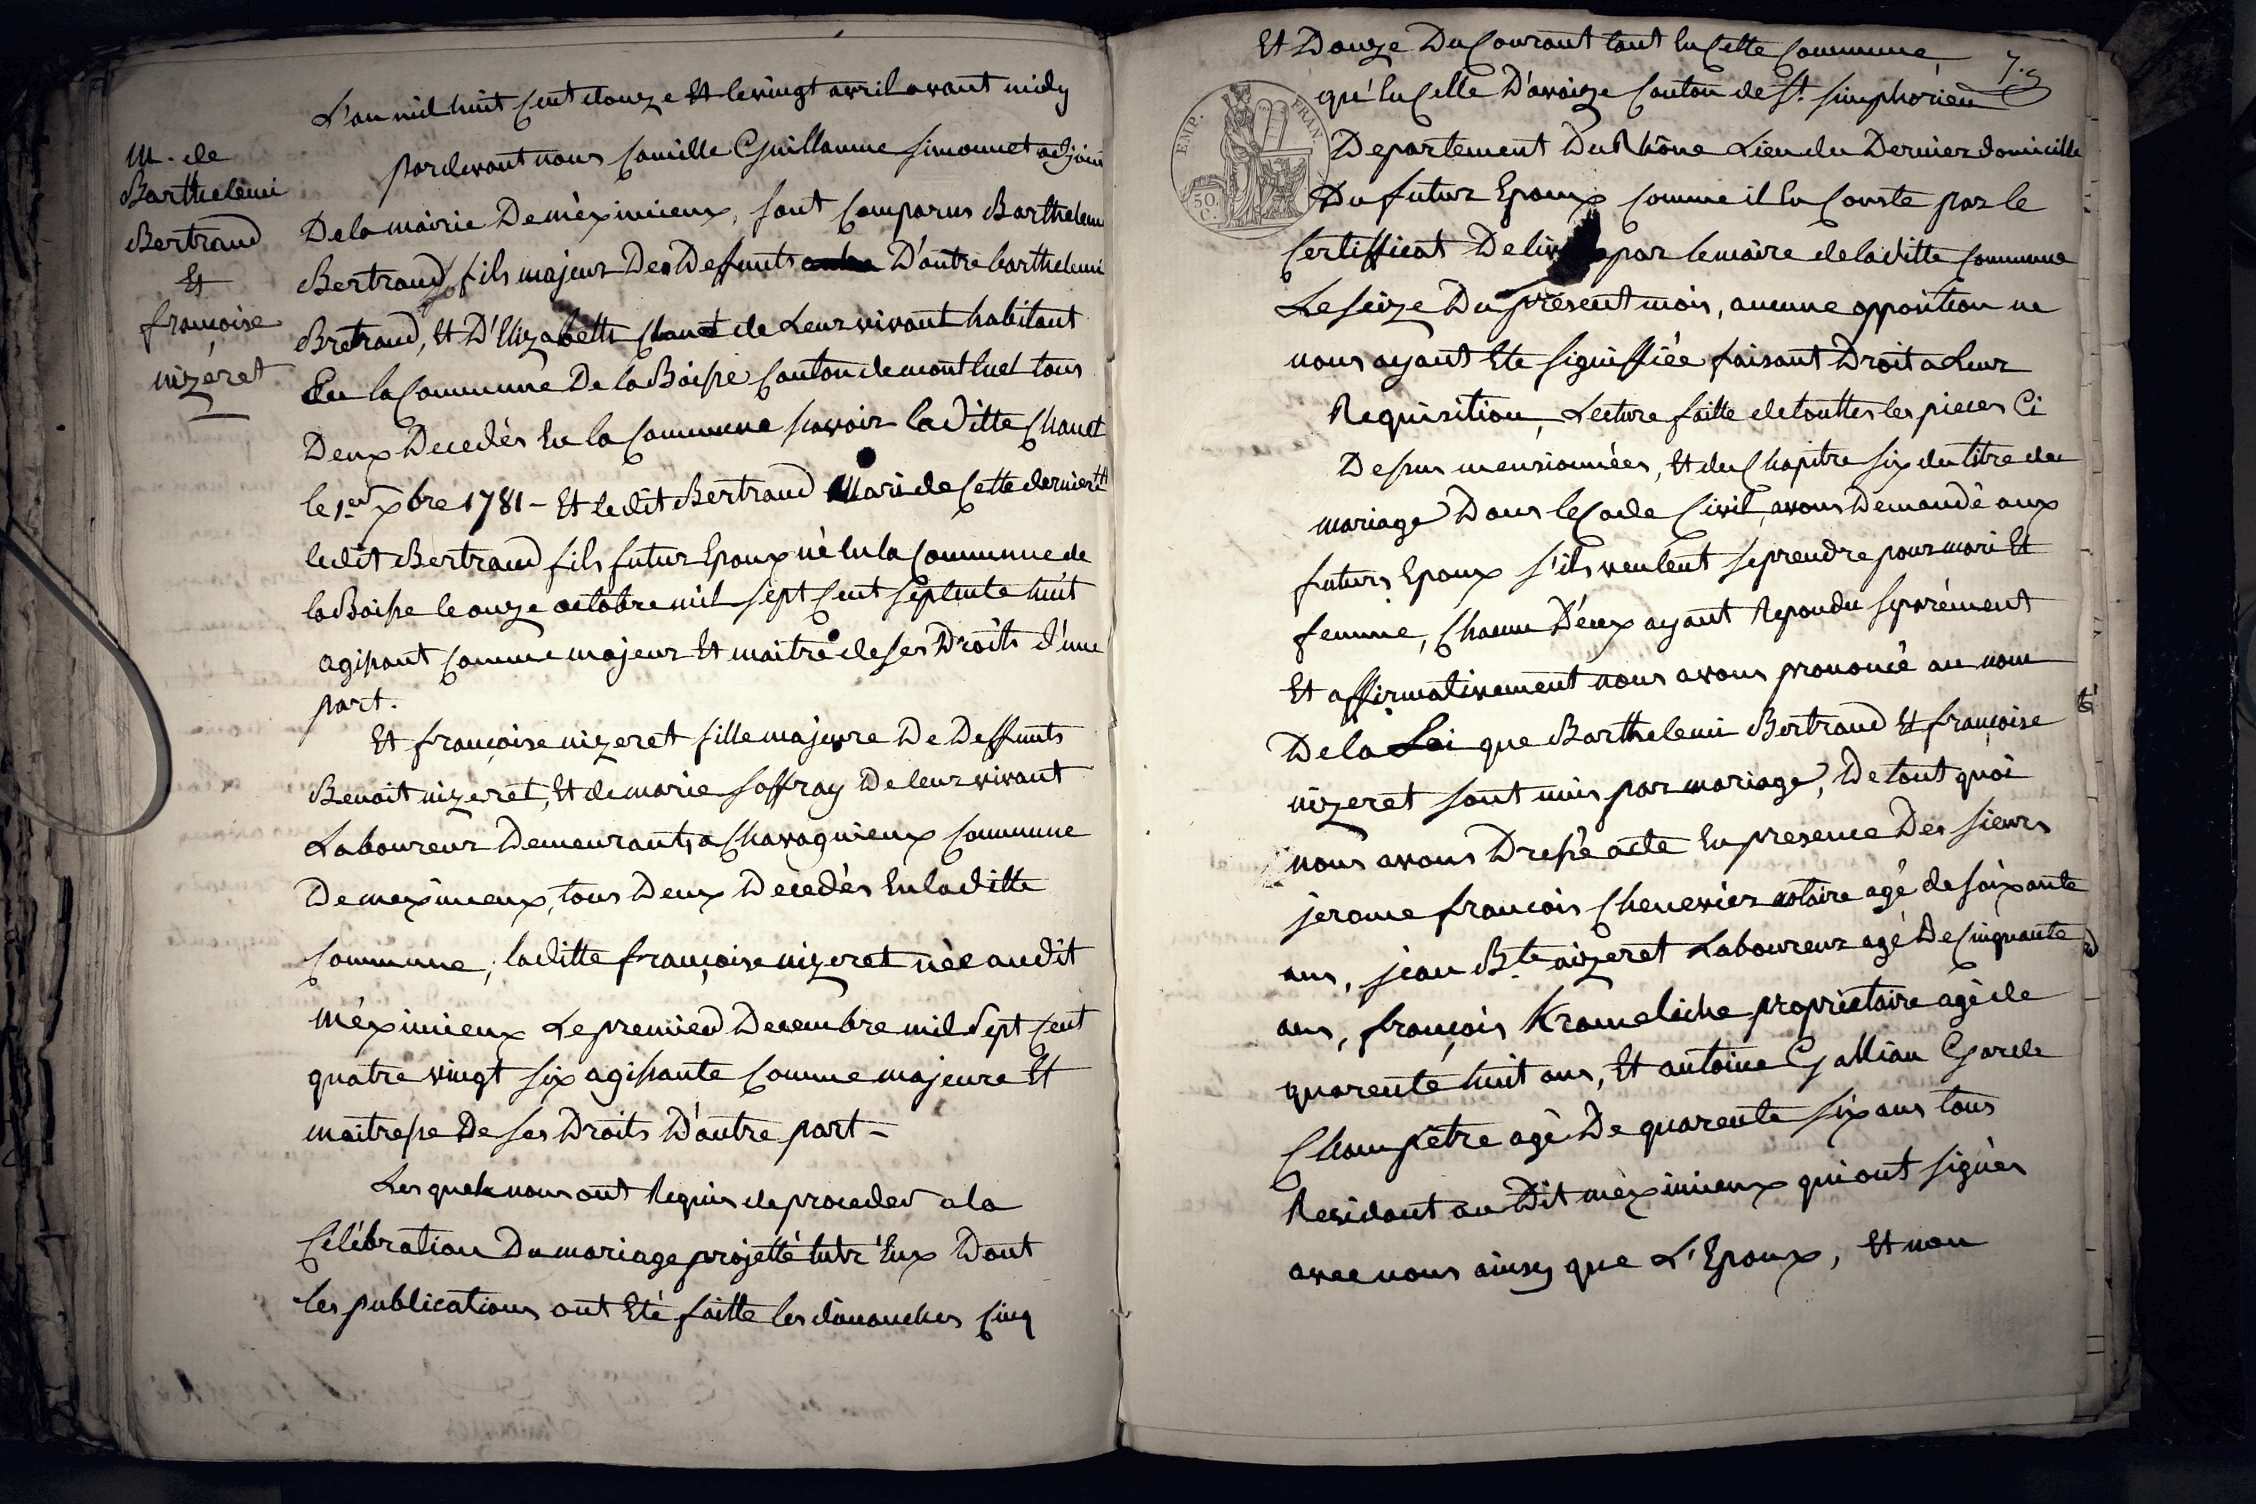 L'an mil huit cent douze Et le vingt avril avant midy
M. de
Barthelemi
Bertrand
Et
françoise
nizeret
pardevant nous Camille Guillaume Simonnet adjoint
De la mairie De méximieux, sont Comparus Barthelemi
Bertrand fils majeur Des Deffunts D'autre barthelemi
Bretrand, Et D'Elizabeth Chanet de Leur vivant habitant
En la Commune De la Boisse Canton de montluel tous
Deux Decedés En la Commune savoir la ditte Chanet
le 1er xbre 1781 - Et ledit Bertrand Mari de Cette derniere
ledit Bertrand fils futur Epoux né En la Commune de
la Boisse le onze octobre mil sept Cent septente huit
agissant Comme majeur Et maitre de ses Droits d'une
part.
Et françoise nizeret fille majeure De Deffunts
Benoit nizeret, Et de marie Soffray De leur vivant
Laboureur Demeurants a Chavagnieux Commune
De meximieux, tous Deux Décedés En la ditte
Commune; la ditte françoise nizeret née au dit
méximieux Le premier Decembre mil Sept Cent
quatre vingt six agissante Comme majeure Et
maitresse De ses Droits D'autre part -
Les quels nous ont Requis de proceder a la
Célébration Du mariage projetté Entr'Eux Dont
les publications ont Eté faitte les dimanches Cinq
Et Douze Du Courant tant En Cette Commune
7.
qu'En Celle D'avaize Canton de St. simphorien
EMP. FRAN
50 C.
Departement Du Rhône Lieu du Dernier domicille
Du futur Epoux Comme il En Conste par le
Certifficat Delivré par le maire de la ditte Commune
Le seize Du présent mois, aucune opposition ne
nous ayant Eté signiffiée faisant Droit a Leur
Requisition, Lecture faitte de touttes les pieces Ci
Dessus mensionnées, Et du Chapitre six du titre du
mariage Dans le Code Civil, avons Demandé aux
futurs Epoux s'ils veulent se prendre pour mari Et
femme, Chacun D'eux ayant Repondu séparément
Et affirmativement nous avons prononcé au nom
De la Loi que Barthelemi Bertrand Et françoise
nizeret sont unis par mariage, De tout quoi
nous avons Dressé acte En presence Des sieurs
jerome françois Chenevier notaire agé de soixante
ans, jean Bte nizeret Laboureur agé De Cinquante
ans, françois Krameliche propriétaire agé de
quarente huit ans, Et antoine Gallian Garde
Champêtre agé De quarente six ans tous
Residant au Dit méximieux qui ont signés
avec nous ainsy que L'Epoux, Et non